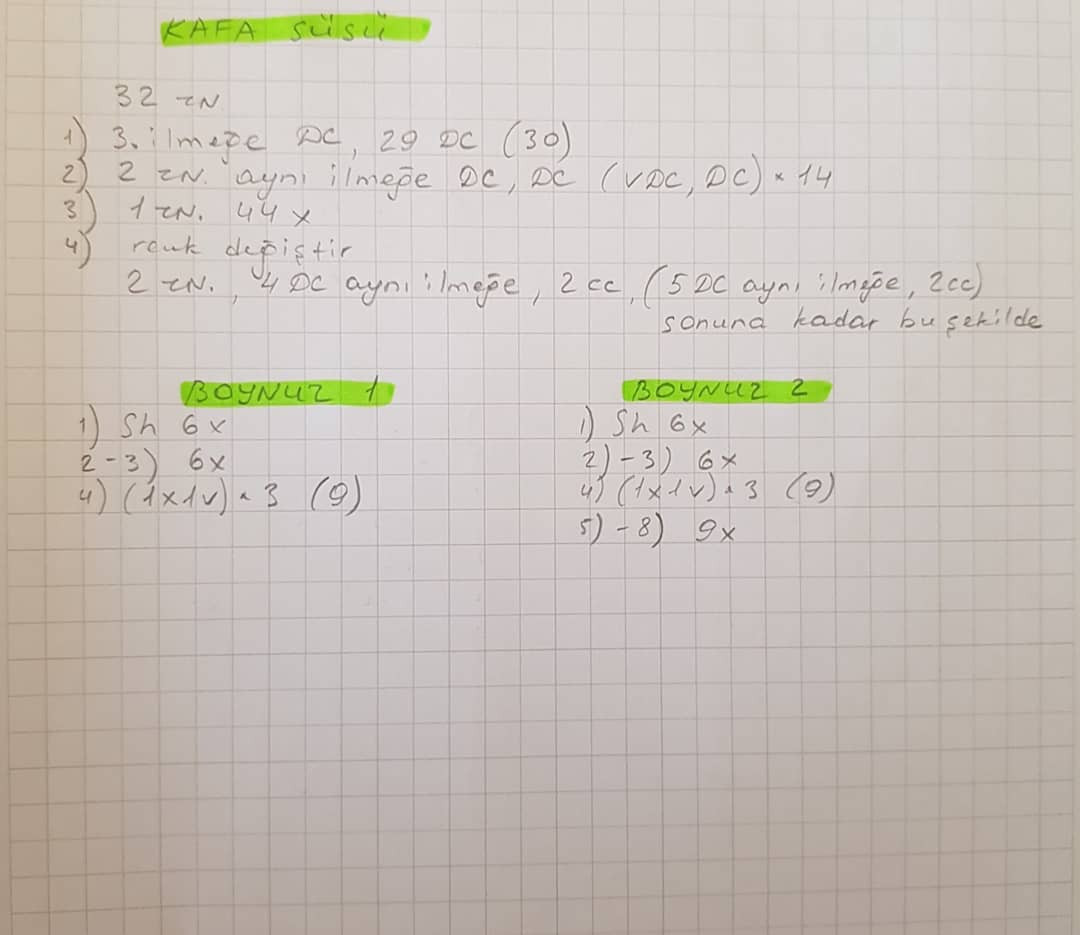 KAFA SÜSÜ
32 ZN
1) 3. ilmeğe DC, 29 DC (30)
2) 2 ZN. aynı ilmeğe DC, DC (VDC, DC) * 14
3) 1 ZN. 44 x
4) renk değiştir
2 ZN., 4 DC aynı ilmeğe, 2 cc, (5 DC aynı ilmeğe, 2cc)
sonuna kadar bu şekilde
BOYNUZ 1
1) Sh 6x
2-3) 6x
4) (1x1v) * 3 (9)
BOYNUZ 2
1) Sh 6x
2)-3) 6x
4) (1x1v) * 3 (9)
5)-8) 9x